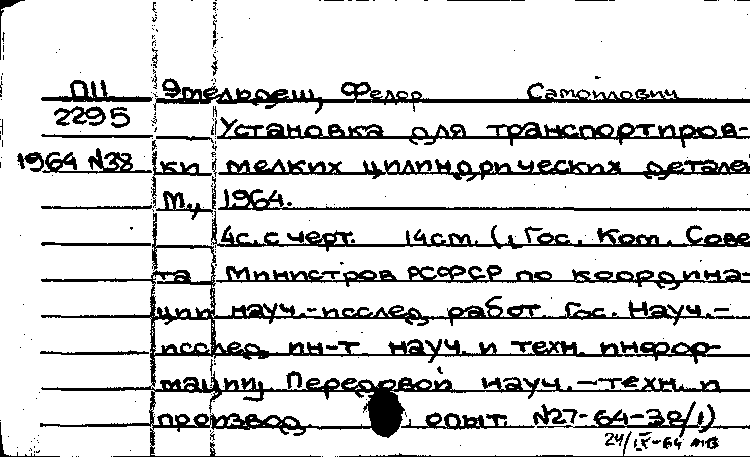 П11 Этельдеш, Федор Самойлович
2295 Установка для транспортиров-
1964 N38 ки мелких цилиндрических деталей
М., 1964.
4с. с черт. 14см. (Гос. Ком. Сове
та Министров РСФСР по координа-
ции науч.-исслед. работ Гос. Науч.-
исслед. ин-т науч. и техн. инфор-
мации, Передовой науч.-техн. и
производ. опыт. N27-64-38/1)
24/IX-64 МВ